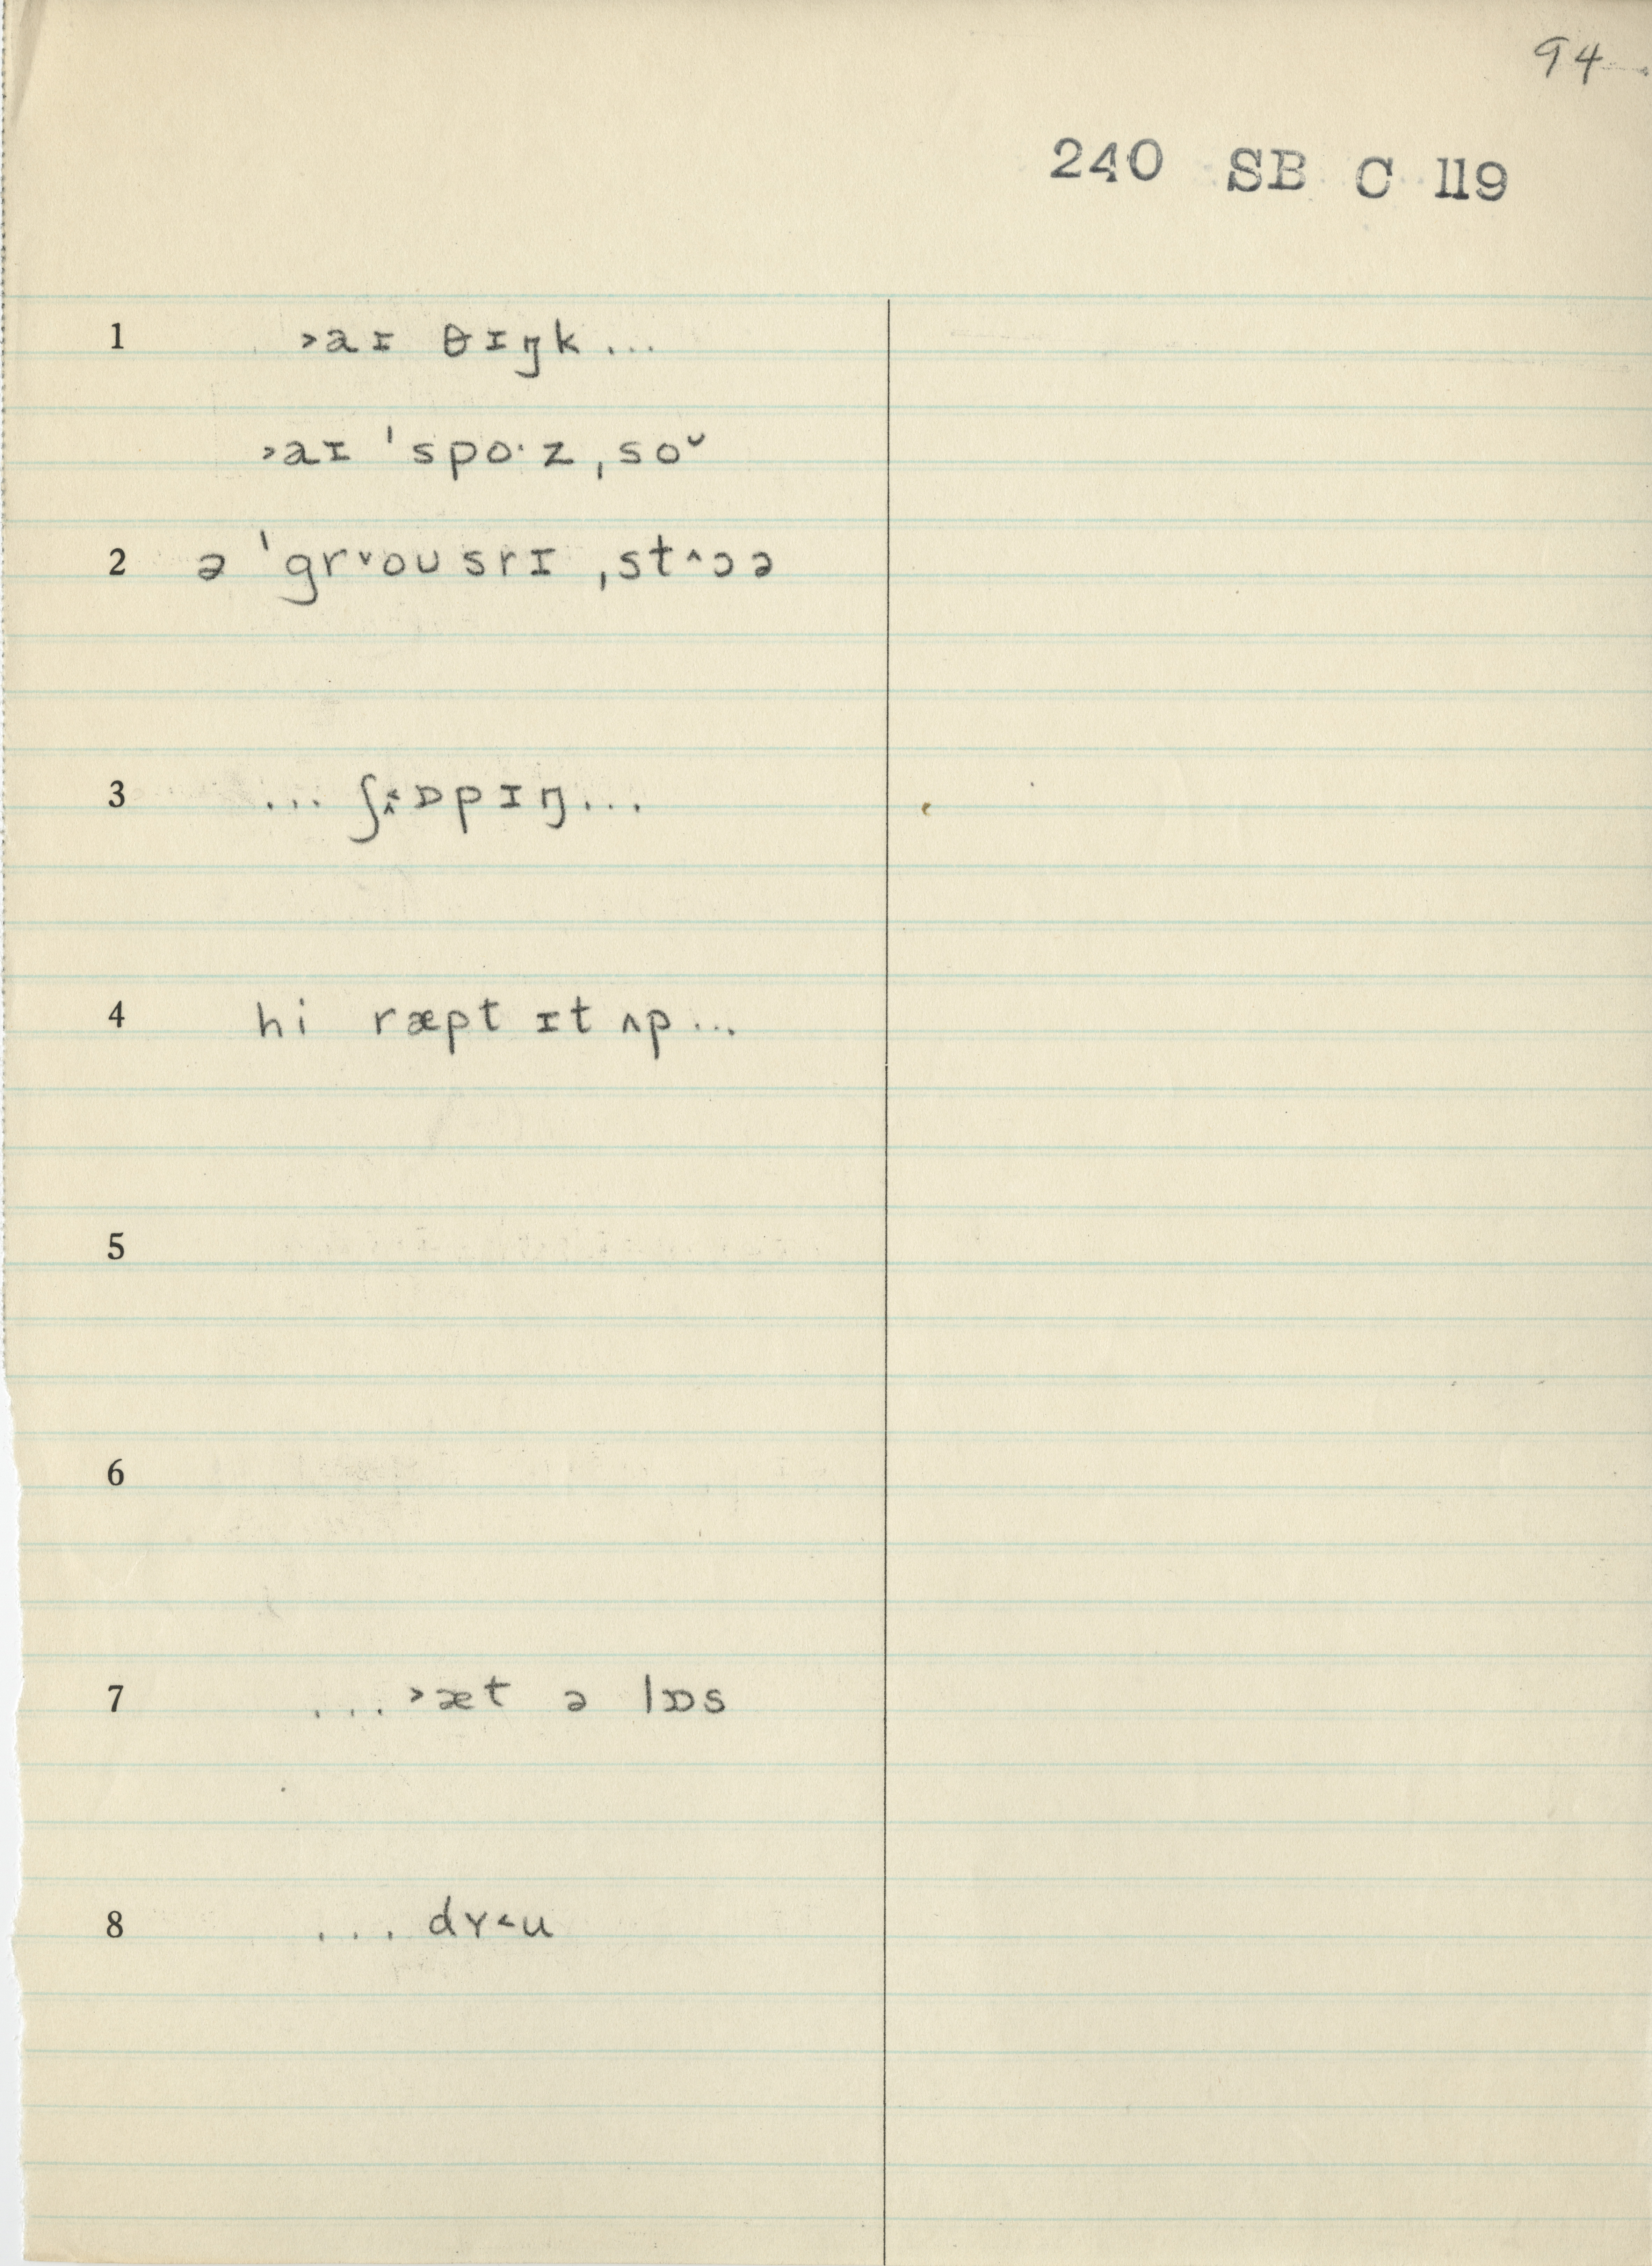 94
240 SB C 119
1 ˃aɪ θɪŋk...
˃aɪ ˈspoˑz ˌsoᵕ
2 ə ˈgr˅oʊsrɪ ˌst˄ɔə
3 ... ʃ˄˂ɒpɪŋ...
4 hi ræpt ɪt ʌp...
5
6
7 ...˃æt ə lɒs
8 ... dʏ˂u